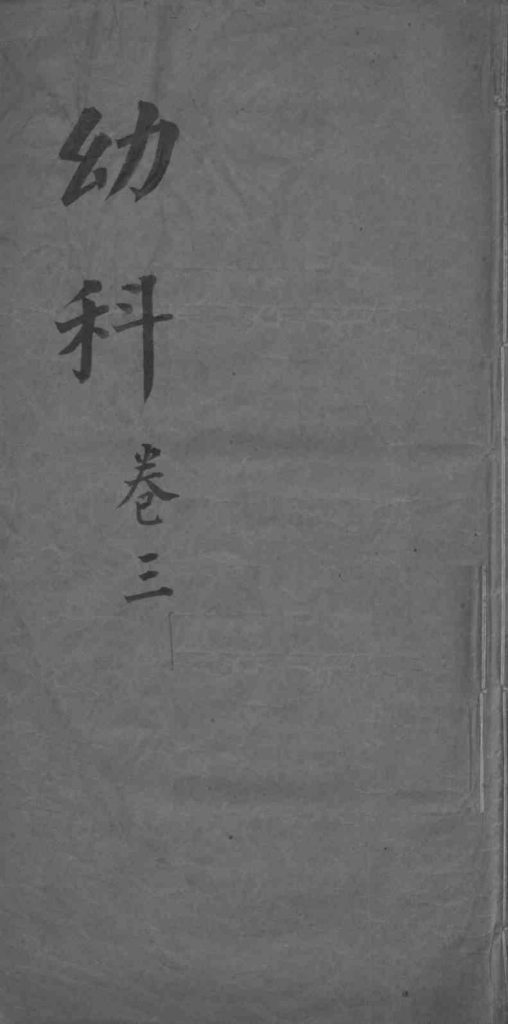 幼科卷三